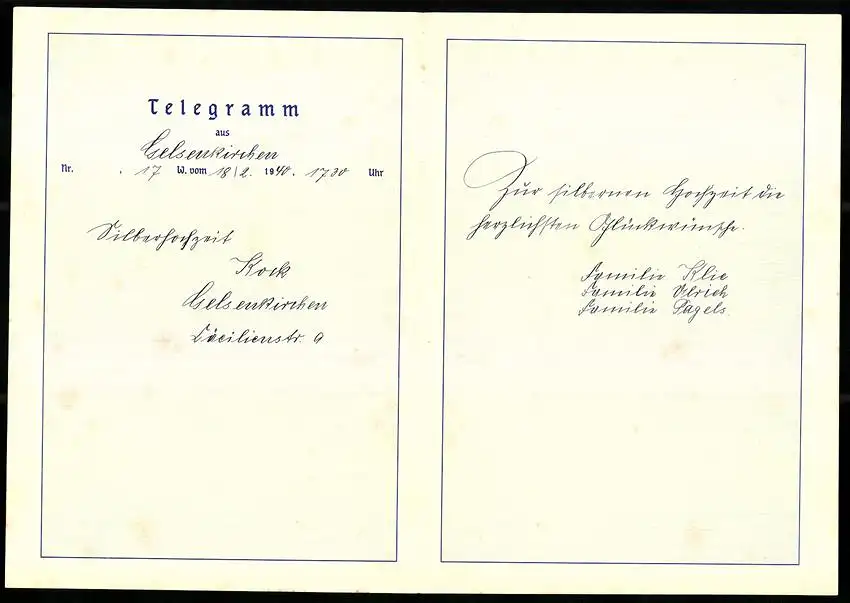 Telegramm
aus
Gelsenkirchen
Nr. . 17 W. vom 18/2. 1940. 1730 Uhr
Silberhochzeit
Kock
Gelsenkirchen
Cäcilienstr. 9
Zur silbernen Hochzeit die
herzlichsten Glückwünsche.
Familie Klie
Familie Ulrich
Familie Pagels.